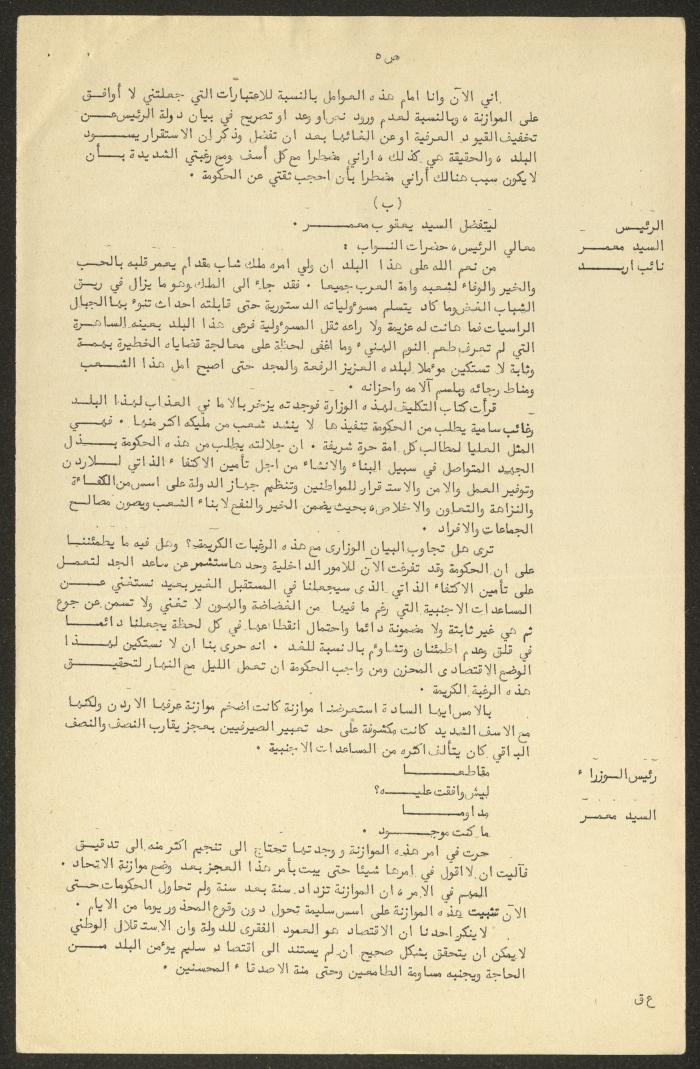 ص ٥
اني الآن وانا امام هذه العوامل بالنسبة للاعتبارات التي جعلتني لا أوافق
على الموازنة ، وبالنسبة لعدم ورود نص او وعد او تصريح في بيان دولة الرئيس عن
تخفيف القيود العرفية او عن الغائها بعد ان تفضل وذكر ان الاستقرار يسود
البلد ، والحقيقة هي كذلك ، اراني مضطرا مع كل أسف ومع رغبتي الشديدة بأن
لا يكون سبب هنالك أراني مضطرا بأن احجب ثقتي عن الحكومة .
( ب )
الرئيس ليتفضل السيد يعقوب معمر .
السيد معمر معالي الرئيس ، حضرات النواب :
نائب اربد من نعم الله على هذا البلد ان ولي امره ملك شاب مقدام يعمر قلبه بالحب
والخير والوفاء لشعبه وامة العرب جميعا . فقد جاء الى الملك وهو ما يزال في ريق
الشباب الغض وما كاد يتسلم مسؤولياته الدستورية حتى قابلته احداث تنوء بها الجبال
الراسيات فما هانت له عزيمة ولا راعه ثقل المسؤولية فرعى هذا البلد بعينه الساهرة
التي لم تعرف طعم النوم الهنيء وما اغفى لحظة على معالجة قضاياه الخطيرة بهمة
وثابة لا تستكين موءملا لبلده العزيز الرفعة والمجد حتى اصبح امل هذا الشعب
ومناط رجائه وبلسم آلامه واحزانه .
قرأت كتاب التكليف لهذه الوزارة فوجدته يزخر بالاماني العذاب لهذا البلد
رغائب سامية يطلب من الحكومة تنفيذها لا ينشد شعب من مليكه اكثر منها . فهي
المثل العليا لمطالب كل امة حرة شريفة . ان جلالته يطلب من هذه الحكومة بذل
الجهد المتواصل في سبيل البناء والانشاء من اجل تأمين الاكتفاء الذاتي للاردن
وتوفير العمل والامن والاستقرار للمواطنين وتنظيم جهاز الدولة على اسس من الكفاءة
والنزاهة والتعاون والاخلاص ، بحيث يضمن الخير والنفع لابناء الشعب ويصون مصالح
الجماعات والافراد .
ترى هل تجاوب البيان الوزارى مع هذه الرغبات الكريمة؟ وهل فيه ما يطمئننا
على ان الحكومة وقد تفرغت الان للامور الداخلية وحدها ستشمر عن ساعد الجد لتعمل
على تأمين الاكتفاء الذاتي الذى سيجعلنا في المستقبل الغير بعيد نستغني عن
المساعدات الاجنبية التي رغم ما فيها من الغضاضة والهون لا تغني ولا تسمن عن جوع
ثم هي غير ثابتة ولا مضمونة دائما واحتمال انقطاعها في كل لحظة يجعلنا دائما
في قلق وعدم اطمئنان وتشاؤم بالنسبة للغد . انه حرى بنا ان لا نستكين لهذا
الوضع الاقتصادى المحزن ومن واجب الحكومة ان تعمل الليل مع النهار لتحقيق
هذه الرغبة الكريمة .
بالامس ايها السادة استعرضنا موازنة كانت اضخم موازنة عرفها الاردن ولكنها
مع الاسف الشديد كانت مكشوفة على حد تعبير الصيرفيين بعجز يقارب النصف والنصف
الباقي كان يتألف اكثره من المساعدات الاجنبية .
رئيس الوزراء مقاطعا
ليش وافقت عليه؟
السيد معمر مداوما
ما كنت موجود .
حرت في امر هذه الموازنة ووجدتها تحتاج الى تنجيم اكثر منه الى تدقيق
فآليت ان لا اقول في امرها شيئا حتى يبت بأمر هذا العجز بعد وضع موازنة الاتحاد .
المهم في الامر ، ان الموازنة تزداد سنة بعد سنة ولم تحاول الحكومات حتى
الآن تثبيت هذه الموازنة على اسس سليمة تحول دون وقوع المحذور يوما من الايام .
لا ينكر احدنا ان الاقتصاد هو العمود الفقرى للدولة وان الاستقلال الوطني
لا يمكن ان يتحقق بشكل صحيح ان لم يستند الى اقتصاد سليم يوءمن البلد من
الحاجة ويجنبه مساومة الطامعين وحتى منة الاصدقاء المحسنين .
ع ق